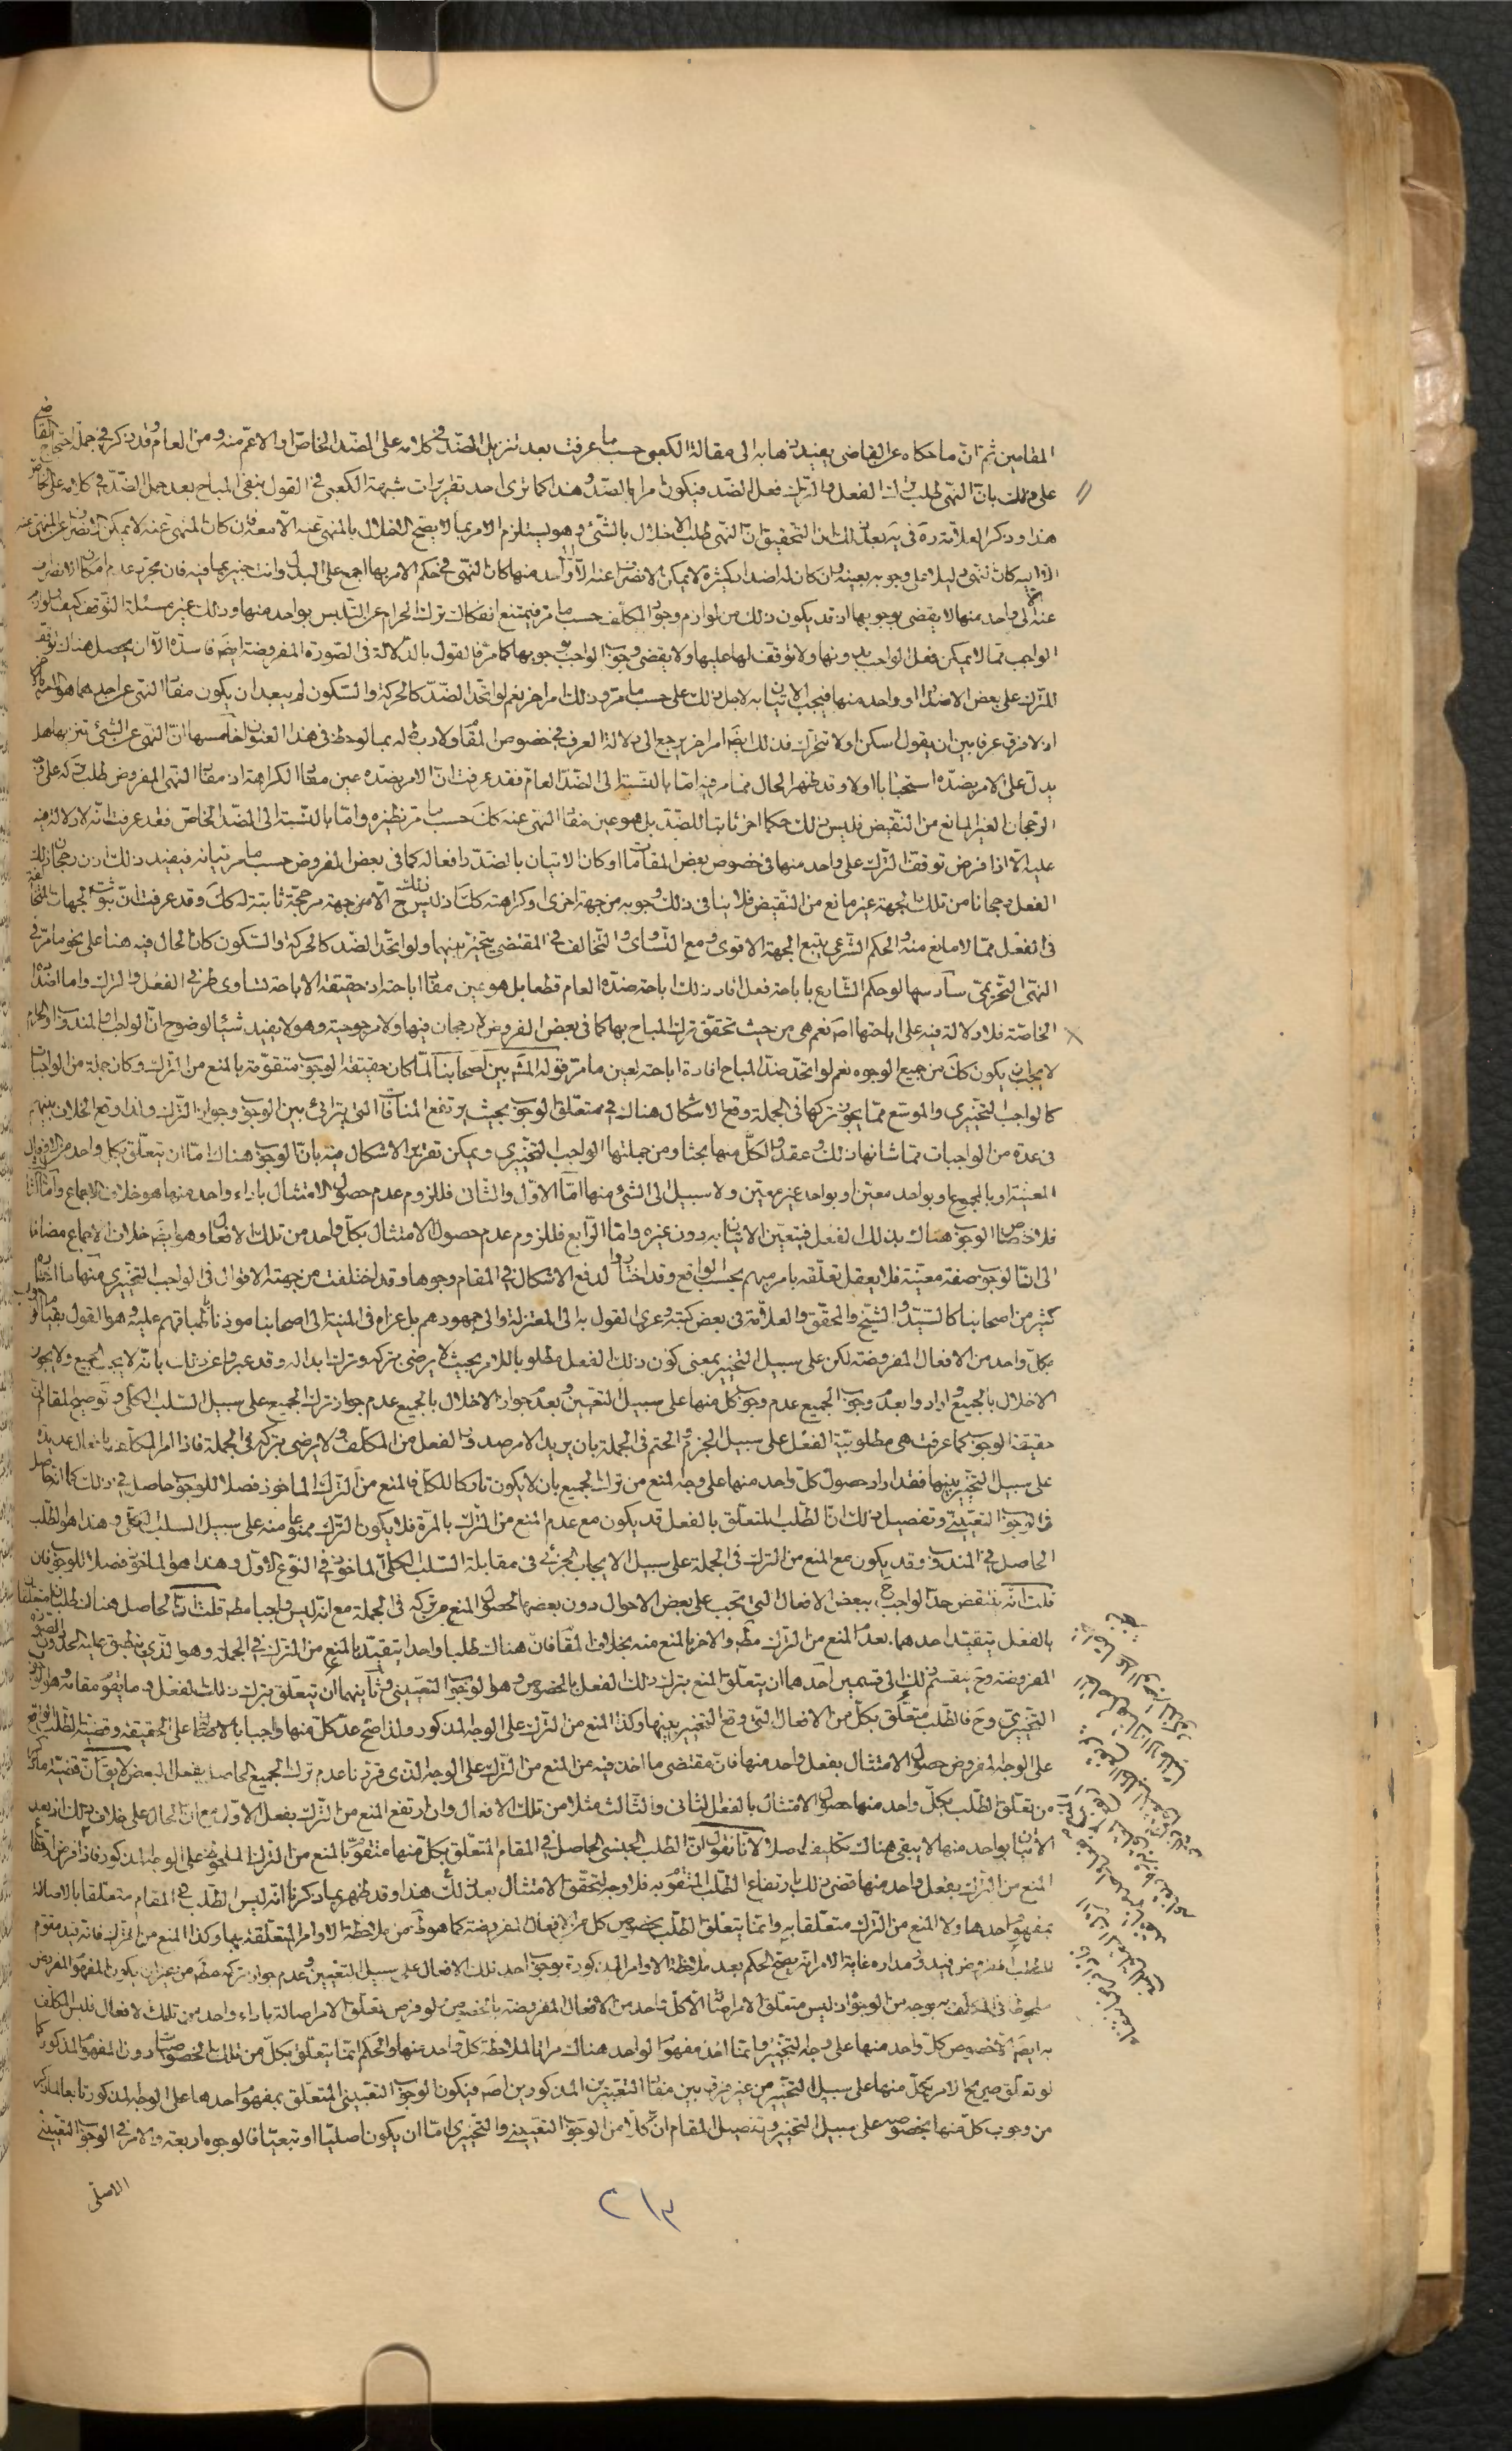 المقامين ثم ان ما حكاه عن القاضي يفيد ذهابه الى مقالة الكعبي حسب ما عرفت بعد تنزيل الضد في كلامه على الضد الخاص او الاعم منه ومن العام وقد ذكر في جملة احتجاج القاضي
على ذلك بان النهي طلب ترك الفعل والترك فعل الضد فيكون امرا بالضد وهذا كما ترى احد تقريرات شبهة الكعبي في القول بنفي المباح بعد حمل الضد في كلامه على الخاص
هذا وذكر العلامة ره في يه بعد ذلك ان التحقيق ان النهي طلب الاخلال بالشيء وهو يستلزم الامر بما لا يصح الاخلال بالمنهي عنه الا معه فان كان المنهي عنه لا يمكن الانصراف عن المنهي عنه
الا اليه كان النهي دليلا على وجوبه بعينه وان كان له اضداد كثيرة لا يمكن الانصراف عنه الا الى واحد منها كان النهي في حكم الامر بها اجمع على البدل وانت خبير بما فيه فان مجرد عدم امكان الانصراف
عنه الا الى واحد منها لا يقضي بوجوبها اذ قد يكون ذلك من لوازم وجود المكلف حسب ما مر فيمتنع انفكاك ترك الحرام عن التلبس بواحد منها وذلك غير مسئلة التوقف كيف ولوازم
الواجب مما لا يمكن فعل الواجب بدونها ولا توقف لها عليها ولا يقضي وجوب الواجب بوجوبها كما مر فالقول بالدلالة في الصورة المفروضة ايضا فاسدة الا ان يحصل هناك توقف
للترك على بعض الاضداد او واحد منها فيجب الاتيان به لاجل ذلك على حسب ما مر وذلك امر اخر نعم لو اتحد الضد كالحركة والسكون لم يبعد ان يكون مفاد النهي عن احدهما هو الامر بالاخر
اذ لا فرق عرفا بين ان يقول اسكن او لا تتحرك فذلك ايضا امر اخر يرجع الى دلالة العرف في خصوص المقام ولا ربط له بما لوحظ في هذا العنوان خامسها ان النهي عن الشيء تنزيها هل
يدل على الامر بضده استحبابا اولا وقد ظهر الحال فيما مر فيه اما بالنسبة الى الضد العام فقد عرفت ان الامر بضده عين مفاد الكراهة اذ مفاد النهي المفروض طلب تركه على وجه
الرجحان الغير المانع من النقيض فليس ذلك حكما اخر ثابتا للضد بل هو عين مفاد النهي عنه كك حسب ما مر نظيره واما بالنسبة الى الضد الخاص فقد عرفت انه لا دلالة فيه
عليه الا اذا فرض توقف الترك على واحد منها في خصوص بعض المقامات او كان الاتيان بالضد رافعا له كما في بعض الفروض حسب ما مر بيانه فيفيد ذلك اذن رجحان ذلك
الفعل رجحانا من تلك الجهة غير مانع من النقيض فلا ينافي ذلك وجوبه من جهة اخرى او كراهته كك اذ ليس ذلك ح الا من جهة مرجحة ثابتة له كك وقد عرفت ان ثبوت الجهات المختلفة
في الفعل مما لا مانع منه والحكم الشرعي يتبع الجهة الاقوى ومع التساوي والتخالف في المقتضي يتخير بينهما ولو اتحد الضد كالحركة والسكون كان الحال فيه هنا على نحو ما مر في
النهي التحريمي سادسها لو حكم الشارع باباحة فعل افاد ذلك اباحة ضده العام قطعا بل هو عين مفاد اباحته اذ حقيقة الاباحة تساوي طرفي الفعل والترك واما اضداده
الخاصة فلا دلالة فيه على اباحتها اصلا نعم هي من حيث تحقق ترك المباح بها كما في بعض الفروض لا رجحان فيها ولا مرجوحية وهو لا يفيد شيئا لوضوح ان الواجب والمندوب والحرام
لا يجب ان يكون كك من جميع الوجوه نعم لو اتحد ضد المباح افاد اباحته بعين ما مر قوله المشهور بين اصحابنا لما كان حقيقة الوجوب متقومة بالمنع من الترك وكان جملة من الواجبات
كالواجب التخييري والموسع مما يجوز تركها في الجملة وقع الاشكال هناك في متعلق الوجوب بحيث يرتفع المنافاة التي يترائى بين الوجوب وجواز الترك ولذا وقع الخلاف بينهم
في عدة من الواجبات مما شانها ذلك وعقدوا لكل منها بحثا ومن جملتها الواجب التخييري ويمكن تقرير الاشكال فيه بان الوجوب هناك اما ان يتعلق بكل واحد من الافعال
المعينة او بالمجموع او بواحد معين او بواحد غير معين ولا سبيل الى الشيء منها اما الاول والثاني فللزوم عدم حصول الامتثال باداء واحد منها وهو خلاف الاجماع واما الثالث
فلاختصاص الوجوب هناك بذلك الفعل فيتعين الاتيان به دون غيره واما الرابع فللزوم عدم حصول الامتثال بكل واحد من تلك الافعال وهو ايضا خلاف الاجماع مضافا
الى ان الوجوب صفة معينة فلا يعقل تعلقه بامر مبهم بحسب الواقع وقد اختاروا لدفع الاشكال في المقام وجوها وقد اختلفت من جهته الاقوال في الواجب التخييري منها ما اختاره
كثير من اصحابنا كالسيد والشيخ والمحقق والعلامة في بعض كتبه وعزي القول به الى المعتزلة والى جمهورهم بل عزاه في المنية الى اصحابنا موذنا باطباقهم عليه وهو القول بقيام الوجوب
بكل واحد من الافعال المفروضة لكن على سبيل التخيير بمعنى كون ذلك الفعل مطلوبا للامر بحيث لا يرضى بتركه وترك ابداله وقد عبروا عن ذلك بانه لا يجب الجميع ولا يجوز
الاخلال بالجميع وارادوا بعدم وجوب الجميع عدم وجوب كل منها على سبيل التعيين وبعدم جواز الاخلال بالجميع عدم جواز ترك الجميع على سبيل السلب الكلي وتوضيح المقام ان
حقيقة الوجوب كما عرفت هي مطلوبية الفعل على سبيل الجزم والحتم في الجملة بان يريد الامر صدور الفعل من المكلف ولا يرضى بتركه في الجملة فاذا امر المكلف بافعال عديدة
على سبيل التخيير بينها فقد اراد حصول كل واحد منها على وجه المنع من ترك الجميع بان لا يكون تاركا للكل فالمنع من الترك الماخوذ فصلا للوجوب حاصل في ذلك كما انه حاصل
في الوجوب التعييني وتفصيل ذلك ان الطلب المتعلق بالفعل قد يكون مع عدم المنع من الترك بالمرة فلا يكون الترك ممنوعا منه على سبيل السلب الكلي وهذا هو الطلب
الحاصل في المندوب وقد يكون مع المنع من الترك في الجملة على سبيل الايجاب الجزئي في مقابلة السلب الكلي الماخوذ في النوع الاول وهذا هو الماخوذ فصلا للوجوب فان
قلت انه ينتقض حد الواجب ح ببعض الافعال التي تجب على بعض الاحوال دون بعضها لحصول المنع من تركه في الجملة مع انه ليس واجبا مطلقا قلت ان الحاصل هناك طلبان متعلقان
بالفعل يتقيد احدهما بعدم المنع من الترك مطلقا والاخر بالمنع منه بخلاف المقام فان هناك طلبا واحدا يتقيد بالمنع من الترك في الجملة وهو الذي ينطبق عليه الحد دون الصورة
المفروضة وح ينقسم ذلك الى قسمين احدهما ان يتعلق المنع بترك ذلك الفعل بالخصوص وهو الوجوب التعييني وثانيهما ان يتعلق بترك ذلك الفعل وما يقوم مقامه وهو الوجوب
التخييري وح فالطلب متعلق بكل من الافعال التي وقع التخيير بينها وكذا المنع من الترك على الوجه المذكور ولذا صح عد كل منها واجبا بالاصالة على الحقيقة وقضية الطلب الواقع
على الوجه المفروض حصول الامتثال بفعل واحد منها فان مقتضى ما اخذ فيه من المنع من الترك على الوجه الذي قررنا عدم ترك الجميع الحاصل بفعل البعض لا يقال ان قضية ما ذكر
من تعلق الطلب بكل واحد منها حصول الامتثال بالفعل الثاني والثالث مثلا من تلك الافعال وان ارتفع المنع من الترك بفعل الاول مع ان الحال على خلاف ذلك اذ بعد
الاتيان بواحد منها لا يبقى هناك تكليف اصلا لانا نقول ان الطلب الجنسي الحاصل في المقام المتعلق بكل منها متقوم بالمنع من الترك الملحوظ على الوجه المذكور فاذا فرض ارتفاع
المنع من الترك بفعل واحد منها قضى ذلك بارتفاع الطلب المتقوم به فلا وجه لتحقق الامتثال بعد ذلك هذا وقد ظهر بما ذكرنا انه ليس الطلب في المقام متعلقا بالاصالة
بمفهوم احدها ولا المنع من الترك متعلقا به وانما يتعلق الطلب بخصوص كل من الافعال المفروضة كما هو ظ من ملاحظة الاوامر المتعلقة بها وكذا المنع من الترك فانه قيد مقوم
للطلب المفروض فيدور مداره غاية الامر انه يصح الحكم بعد ملاحظة الاوامر المذكورة بوجوب احد تلك الافعال على سبيل التعيين وعدم جواز تركه مطلقا من غير ان يكون المفهوم المفروض
ملحوظا في المكلف به بوجه من الوجوه اذ ليس متعلق الامر اصالة الا كل واحد من الافعال المفروضة بالخصوص ولو فرض تعلق الامر اصالة باداء واحد من تلك الافعال فليس المكلف
به ايضا الا خصوص كل واحد منها على وجه التخيير وانما اخذ مفهوم الواحد هناك مراتا لملاحظة كل واحد منها والحكم انما يتعلق بكل من تلك الخصوصيات دون المفهوم المذكور كما
لو تعلق صريح الامر بكل منها على سبيل التخيير من غير فرق بين مفاد التعبيرين المذكورين اصلا فيكون الوجوب التعييني المتعلق بمفهوم احدها على الوجه المذكور تابعا لما ذكر
من وجوب كل منها بخصوصه على سبيل التخيير وتفصيل المقام ان كلا من الوجوب التعييني والتخييري اما ان يكون اصليا او تبعيا فالوجوه اربعة والامر في الوجوب التعييني
الاصلي
٢١٣